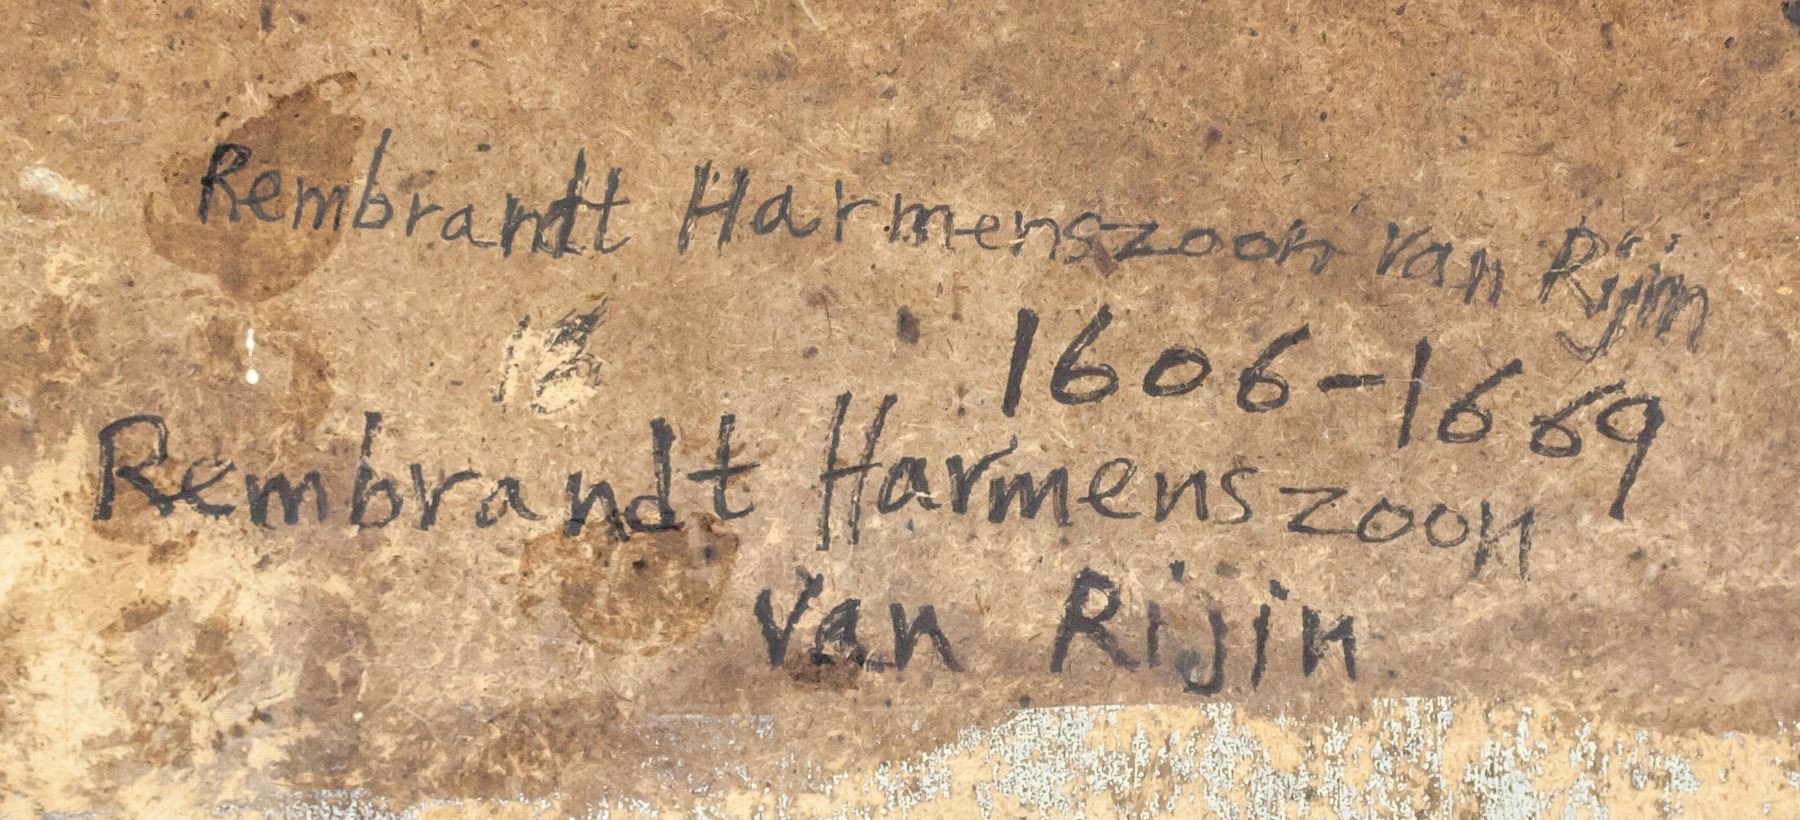 Rembrandt Harmenszoon Van Rijin
1606-1669
Rembrandt Harmenszoon
Van Rijin